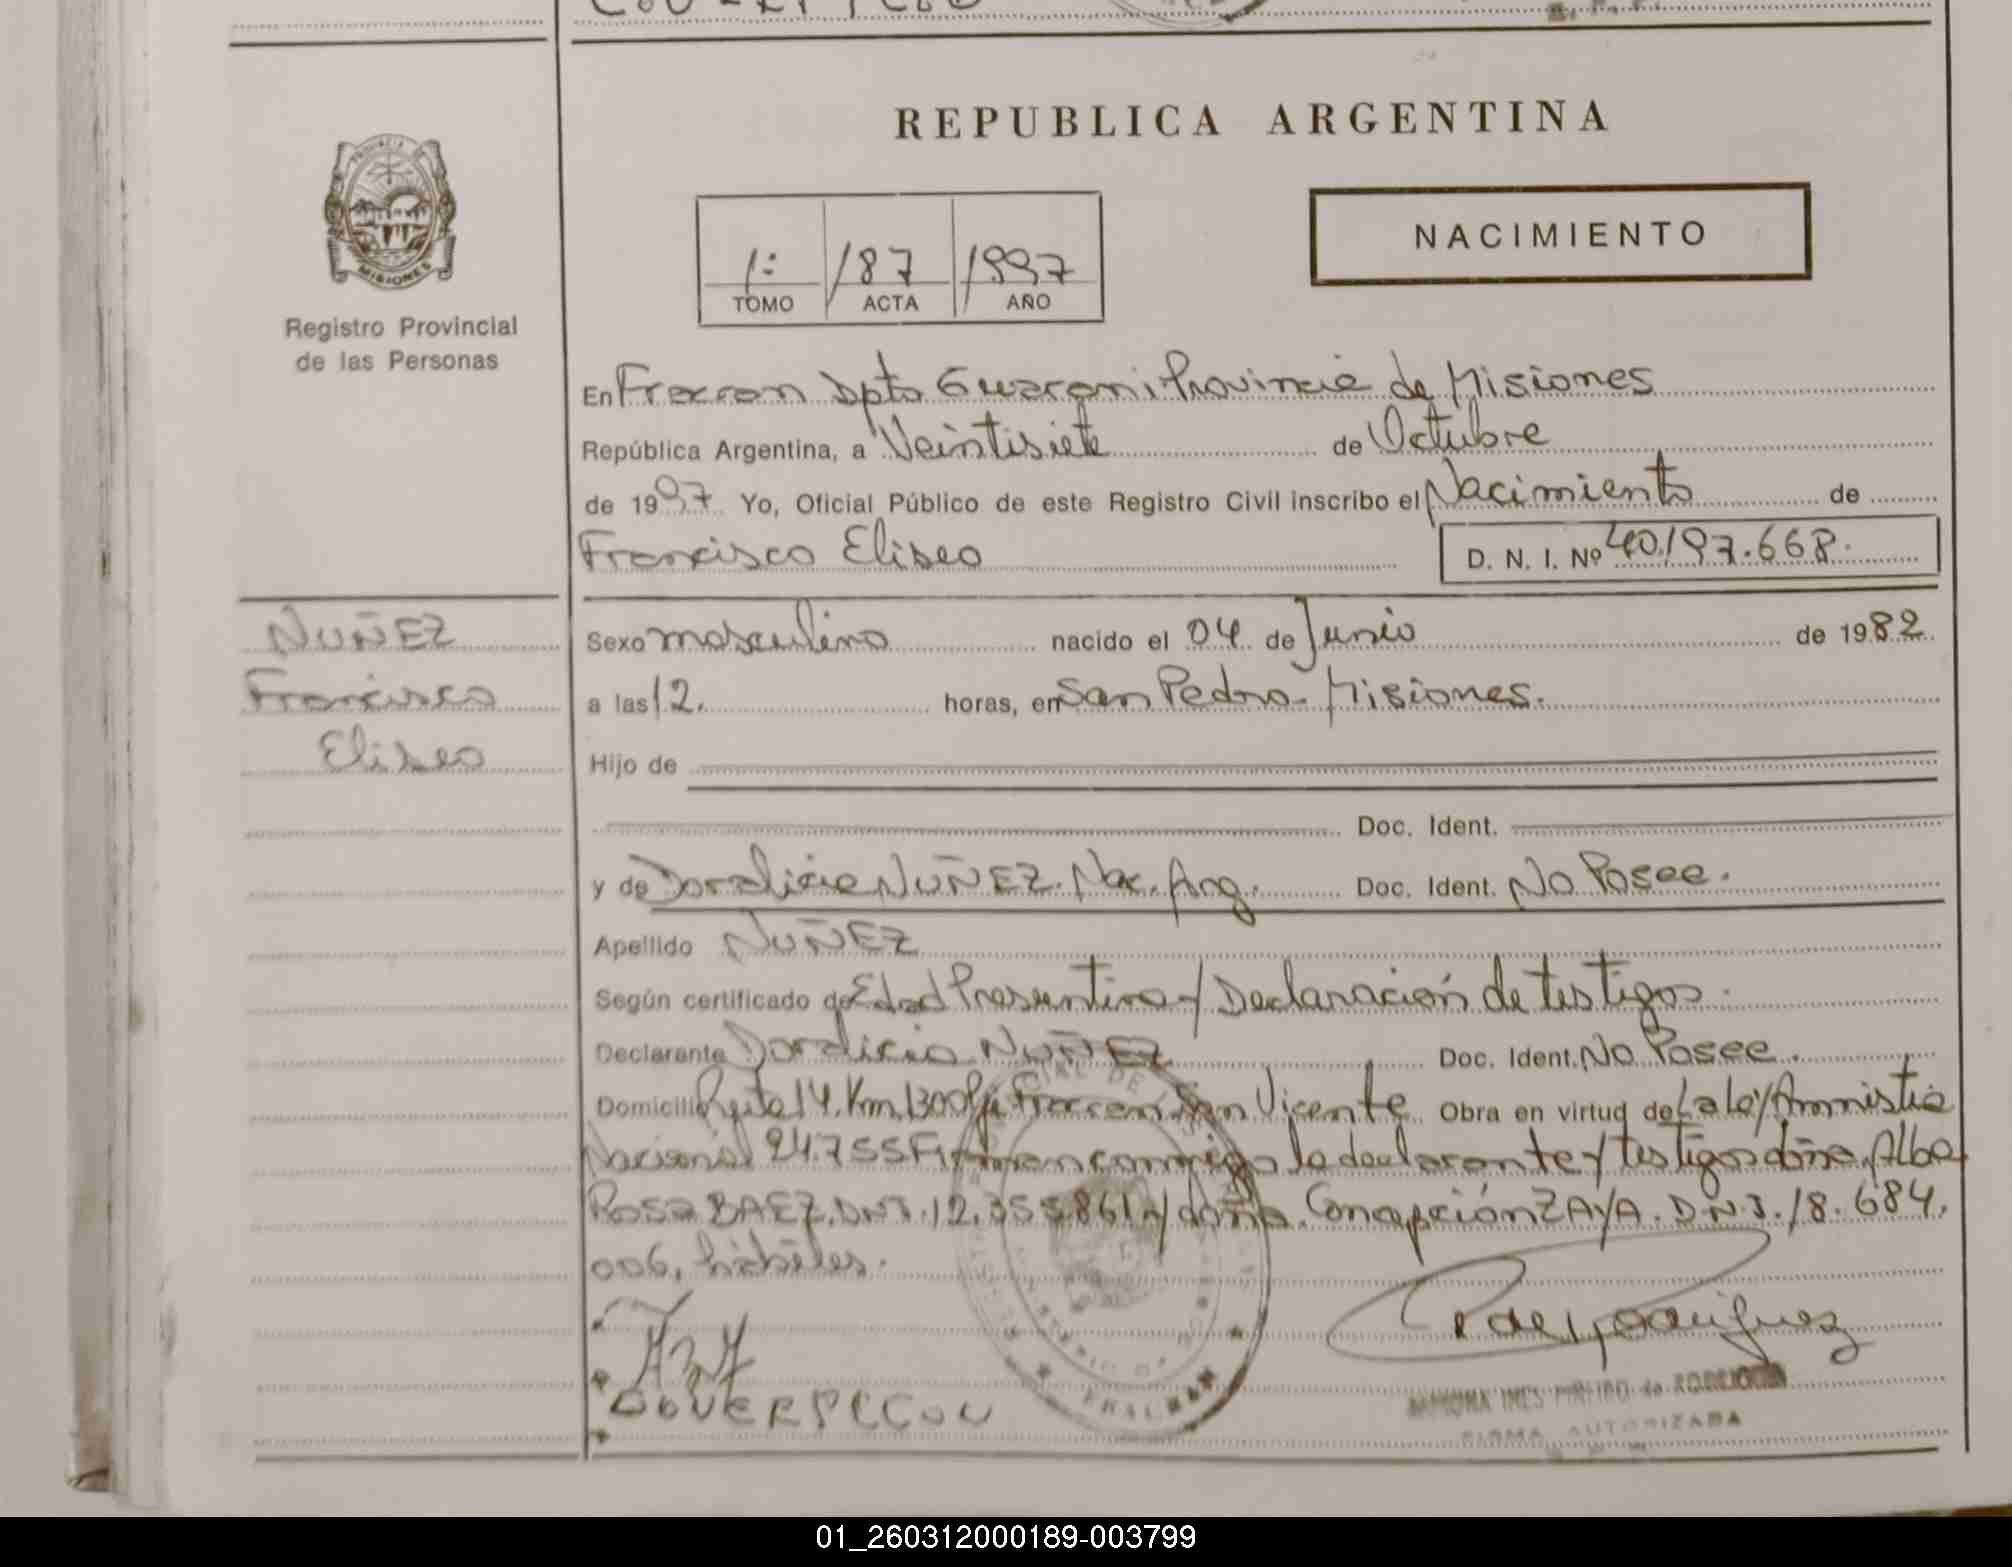 REPUBLICA ARGENTINA
NACIMIENTO
1: /87 1997
TOMO ACTA AÑO
PROVINCIA DE
MISIONES
Registro Provincial
de las Personas
En Fracran Dpto Guarani Provincia de Misiones
República Argentina, a Veintisiete de Octubre
de 1997 Yo, Oficial Público de este Registro Civil inscribo el Nacimiento de
Francisco Eliseo D. N. I. Nº 40.197.668.
NUÑEZ
Francisco
Eliseo
Sexo masculino nacido el 04 de Junio de 1982
a las 12. horas, en San Pedro - Misiones.
Hijo de
Doc. Ident.
y de Doralicia NUÑEZ. Nac. Arg. Doc. Ident. No Posee.
Apellido NUÑEZ
Según certificado de Edad Presuntiva y Declaración de testigos.
Declarante Doralicia NUÑEZ Doc. Ident. No Posee.
Domicilio Ruta 14. Km 1300 Fracran San Vicente Obra en virtud de La ley Amnistia
Nacional 24.755 Firman conmigo la declarante y testigos doña Alba
Rosa BAEZ. DNI. 12.355.861 y doña Concepción ZAYA. D.N.I. 18.684.
006, hábiles.
FIRMA AUTORIZADA
FRACRAN
01_260312000189-003799